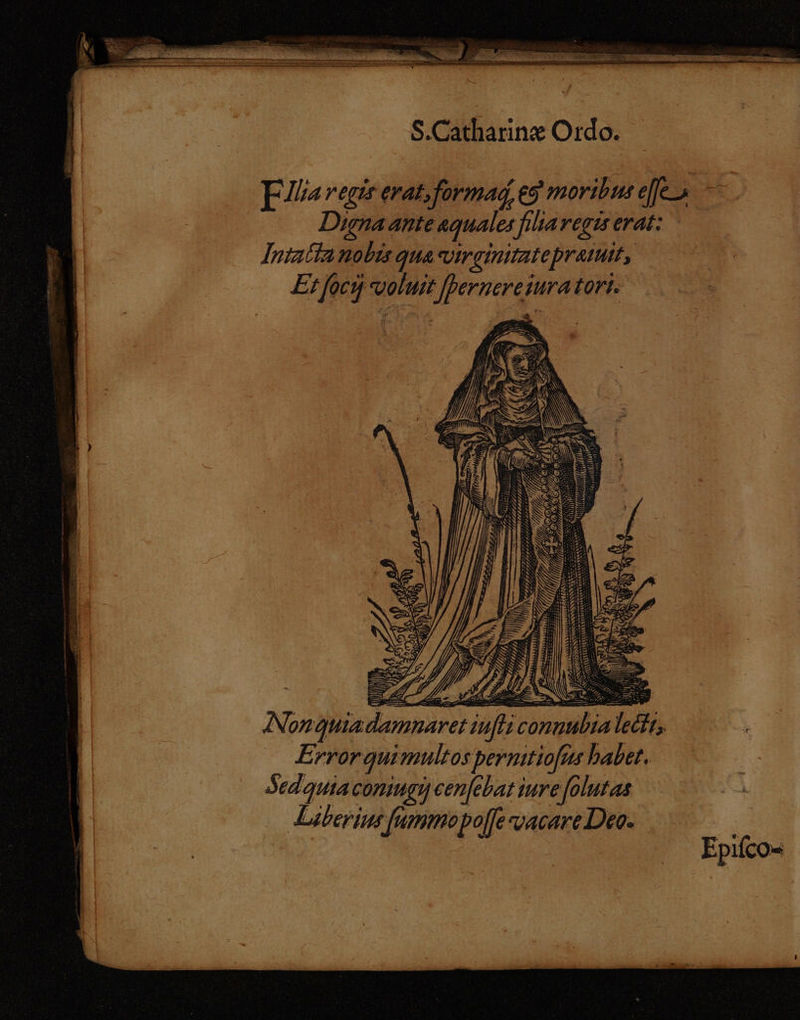 S.Catharinæ Ordo.
FIlia regis erat, formaq́, & moribus esse,
Digna ante æquales filia regis erat:
Intacta nobis qua virginitate præiuit,
Et socij voluit spernere iura tori.
Non quia damnaret iusti connubia lecti,
Error qui multos pernitiosus habet.
Sed quia coniugij censebat iure solutas
Liberius summo posse vacare Deo.
Episco-